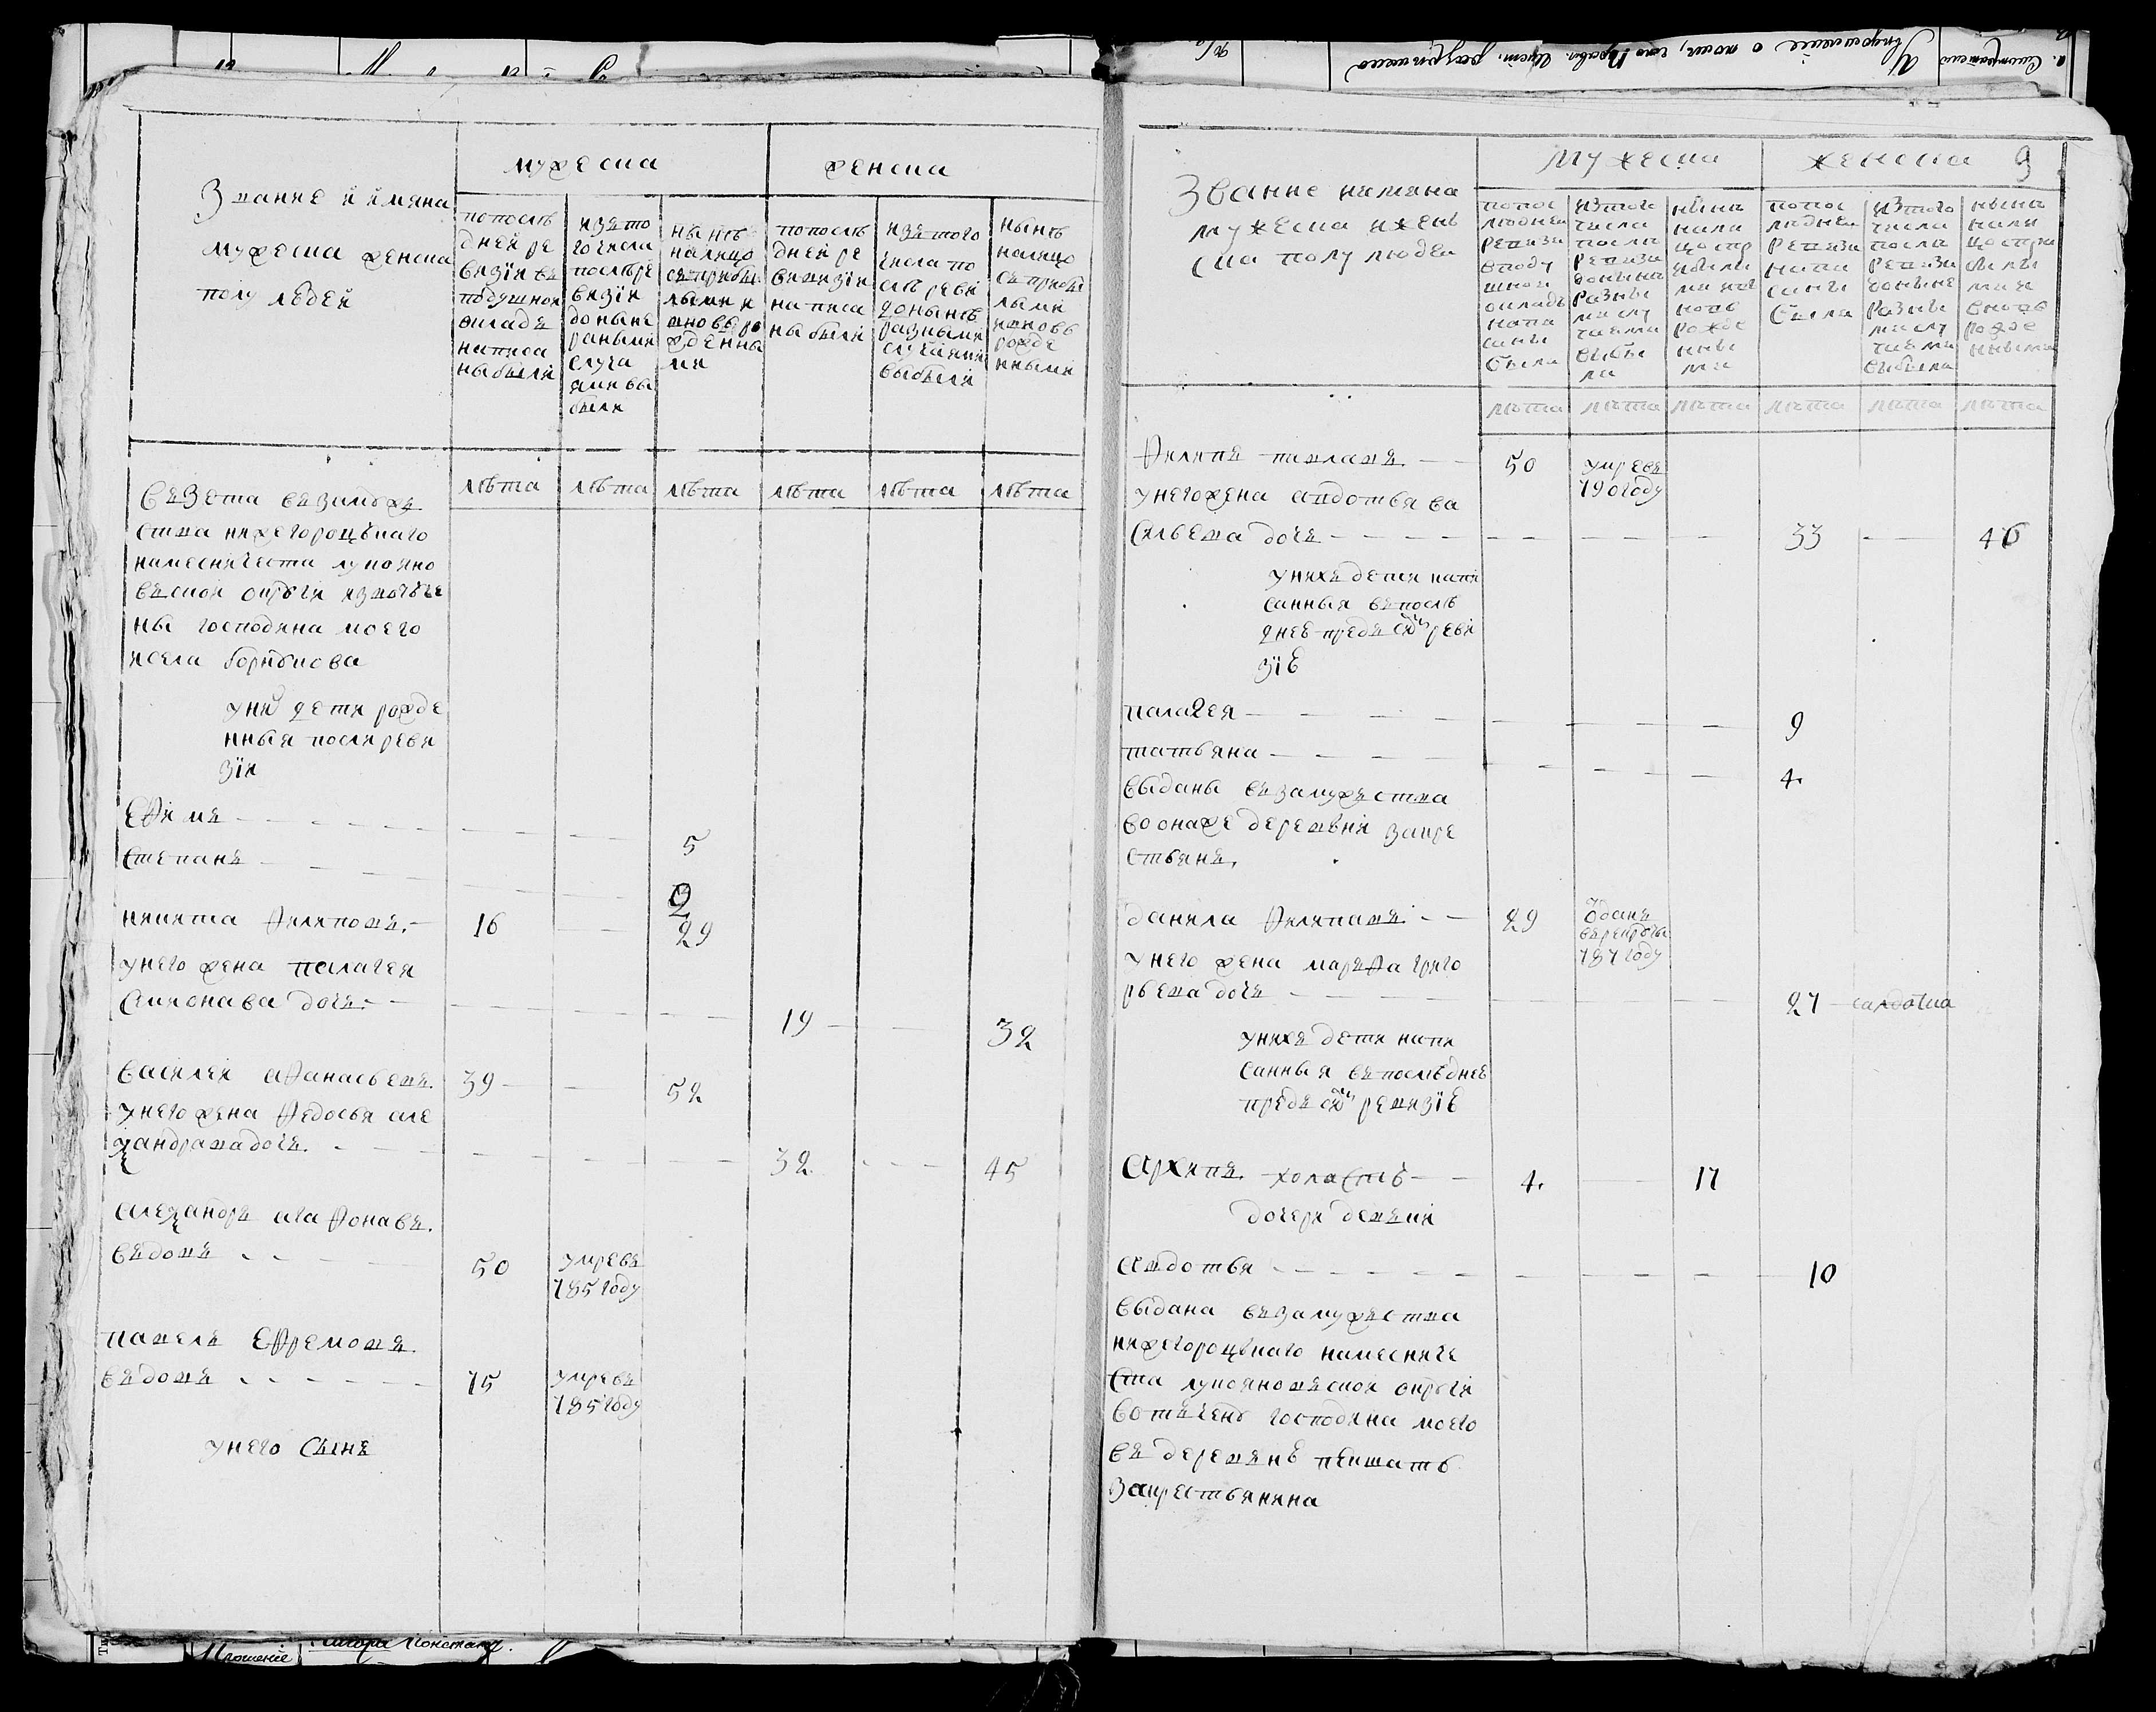 Звание и имяна
мужеска женска
полу людей
мужеска
женска
попосле
дней ре
визiи въ
подушной
окладъ
написа
ны были
изъ то
го числа
после ре
визiи
доныне
разными
случа
ями вы
были
ныне
налицо
съ прибы
лыми и
вновь ро
жденны
ми
попосле
дней ре
визiи
написа
ны были
изъ того
числа по
сле ревi
доныне
разными
случаями
выбыли
ныне
налицо
съ прибы
лыми
и вновь
рожде
нными
лѣта лѣта лѣта лѣта лѣта лѣта
взета въ замужѣ
ства нижегороцкаго
намесничества лукояно
въской округи извотчи
ны господина моего
исела
у ни дети рожде
нныя после реви
зiи
Ефимъ 5
степанъ 2
никита филиповъ 16 29
унего жена палагея
симонава дочь 19 32
василей афанасьевъ 39 52
унего жена федосья але
ѯандрава дочь 32 45
алеѯандръ агафонавъ
вдовъ 50 умре въ
785 году
павелъ Ефремовъ
вдовъ 75 умре въ
785 году
унего сынъ
9
Звание иимяна
мужеска ижень
ска полу людей
мужеска
женска
попос
людней
ревизи
споду
шной
окладъ
напи
саны
была
изтого
числа
посли
ревизи
доныня
разны
ми слу
чаями
выбы
ли
ныня
нали
цо спр
ибылы
ми и
новь
рожде
нны
ми
попос
людней
ревизи
напи
саны
была
изтого
числа
посли
ревизи
доныне
разны
ми слу
чаями
выбыли
ныня
нали
цо спри
былы
ми и
вновь
рожде
нными
лѣта лѣта лѣта лѣта лѣта лѣта
филипъ павлавъ 50 умре въ
790 году
унего жена авдотья ва
сильева дочь 33 46
унихъ дети напи
санныя въ после
днеѣ предъ сей реви
зiѣ
палагея 9
татьяна 4
выданы въ замужества
во онаже деревни за кре
стьянъ.
данила филипавъ 29 отданъ
въ рекруты
787 году
унего жена марфа григо
рьева дочь 27 салдатка
унихъ дети напи
санныя въ последнеѣ
предъ сей ревизiѣ
Архипъ холастъ 4 17
дочери девки
Авдотья 10
выдана въ замужества
нижегороцкаго намесниче
ства лукояновской округи
вотчену господина моего
въ деревнѣ
за крестьянина